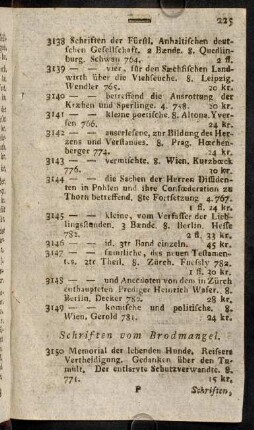 225
3138 Schriften der Fürstl. Anhaltischen deut-
schen Gesellschaft. 2 Bænde. 8. Quedlin-
burg. Schwan 764. 2 fl.
3139 — — vier, für den Sæchsischen Land-
wirth über die Viehseuche. 8. Leipzig.
Wendler 765. 20 kr.
3140 — — betreffend die Ausrottung der
Kræhen und Sperlinge. 4. 758. 20 kr.
3141 — — kleine poetische 8. Altona. Iver-
sen 766. 24 kr.
3142 — — auserlesene, zur Bildung des Her-
zens und Verstandes. 8. Prag. Hœchen-
berger 774. 24 kr.
3143 — — vermischte. 8. Wien. Kurzbœck
776. 10 kr.
3144 — — die Sachen der Herren Dissiden-
ten in Pohlen und ihre Confœderation zu
Thorn betreffend. 8te Fortsetzung 4. 767.
1 fl. 24 kr.
3145 — — kleine, vom Verfasser der Lieb-
lingsstunden. 3 Bænde. 8. Berlin. Hesse
782. 2 fl. 33 kr.
3146 — — id. 3tr Band einzeln. 45 kr.
3147 — — sæmtliche, des neuen Testamen-
ts. 2tr Theil. 8. Zürch. Fuessly 782.
1 fl. 20 kr.
3148 — — und Anecdoten von dem in Zürch
enthaupteten Prediger Heinrich Waser. 8.
Berlin. Decker 782. 28 kr.
3149 — — komische und politische. 8.
Wien. Gerold 781. 24 kr.
Schriften vom Brodmangel.
3150 Memorial der lebenden Hunde, Reisers
Vertheidigung. Gedanken über den Tu-
mult. Der entlarvte Schutzverwandte. 8.
771. 15 kr.
P Schriften,